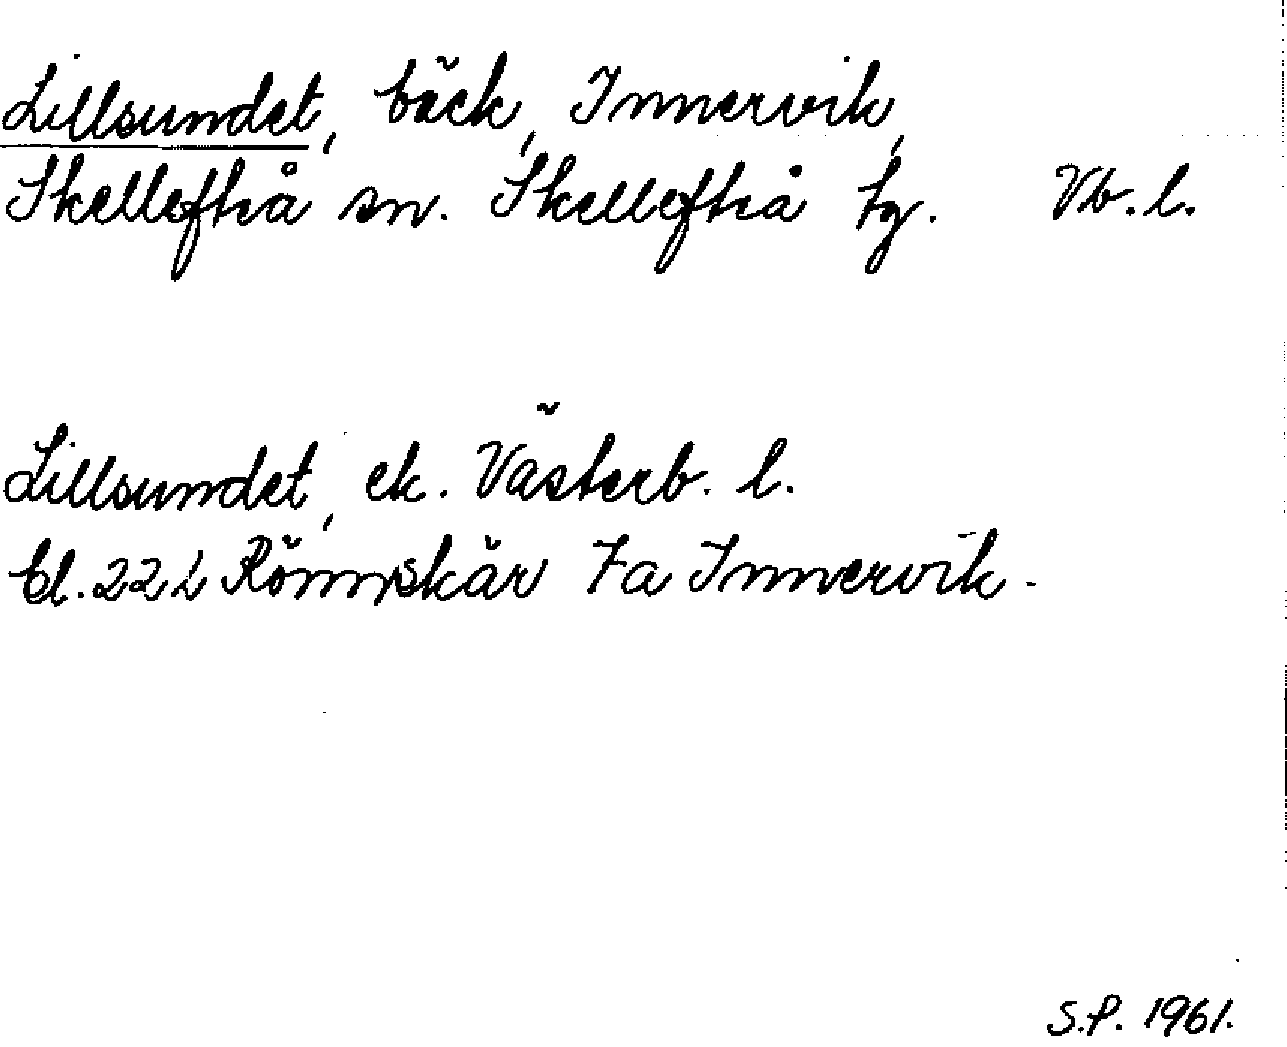 Lillsundet, bäck, Innervik,
Skellefteå sn. Skellefteå tg. Vb. l.
Lillsundet, ek. Västerb. l.
bl. 22 L Rönnskär 7a Innervik.
S.P. 1961.